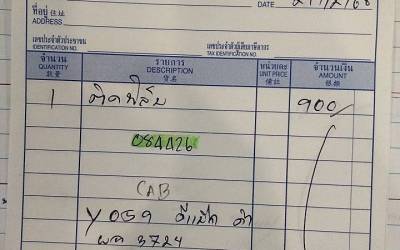 ที่อยู่
ADDRESS
เลขประจำตัวประชาชน เลขประจำตัวผู้เสียภาษีอากร
IDENTIFICATION NO. TAX IDENTIFICATION NO.
จำนวน รายการ หน่วยละ จำนวนเงิน
QUANTITY DESCRIPTION UNIT PRICE AMOUNT
數量 貨名 備註 銀碼
1 ติดฟิล์ม 900/
084426
CAB
Y059 ดีแม็ก ดำ
ผค 3724